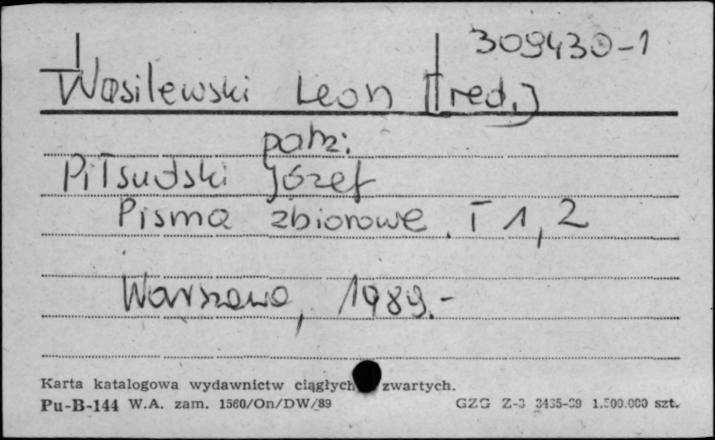 309430-1
Wasilewski Leon [red.]
patrz:
Piłsudski Józef
Pisma zbiorowe. T 1, 2
Warszawa, 1989.-
Karta katalogowa wydawnictw ciągłych zwartych.
Pu-B-144 W.A. zam. 1560/On/DW/89 GZG Z-3 3435-89 1.500.000 szt.